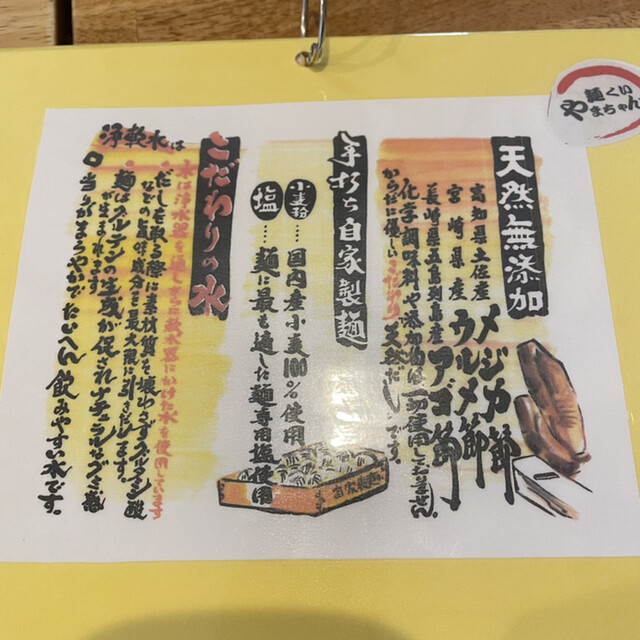 麺くい
やまちゃん
天然無添加
高知県土佐産 メジカ節
宮崎県産 ウルメ節
長崎県五島列島産 アゴ節
化学調味料や添加物は一切使用しておりません。
からだに優しいこだわり天然だしです。
手打ち自家製麺
小麦粉……国内産小麦100%使用
塩……麺に最も適した麺専用塩使用
自家製麺
こだわりの水
水は浄水器を通しさらに軟水器にかけた水を使用しています
浄軟水は
・だしを取る際に素材質を壊わさずグルタミン酸
などの旨味成分を最大限に引きだします。
・麺はグルテンの生成が促されナチュラルなグミ感
が生まれます。
口当りがまろやかでたいへん飲みやすい水です。